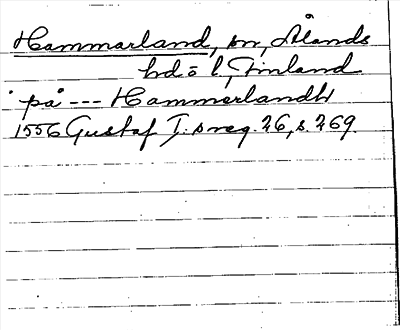 Hammarland, sn, Ålands
hd o l, Finland
på --- Hammerlandh
1556 Gustaf I:s reg. 26, s. 269.